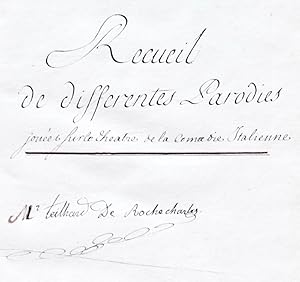 Recueil
de differentes Parodies
jouées sur le Theatre de la Comœdie Italienne
Mr. teilhard De Rochecharles.